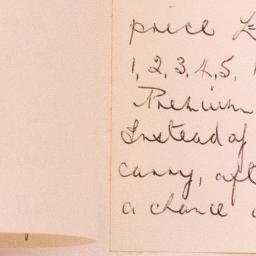 price £
1, 2, 3, 4, 5,
Premium
Instead of
carry, aft
a chance